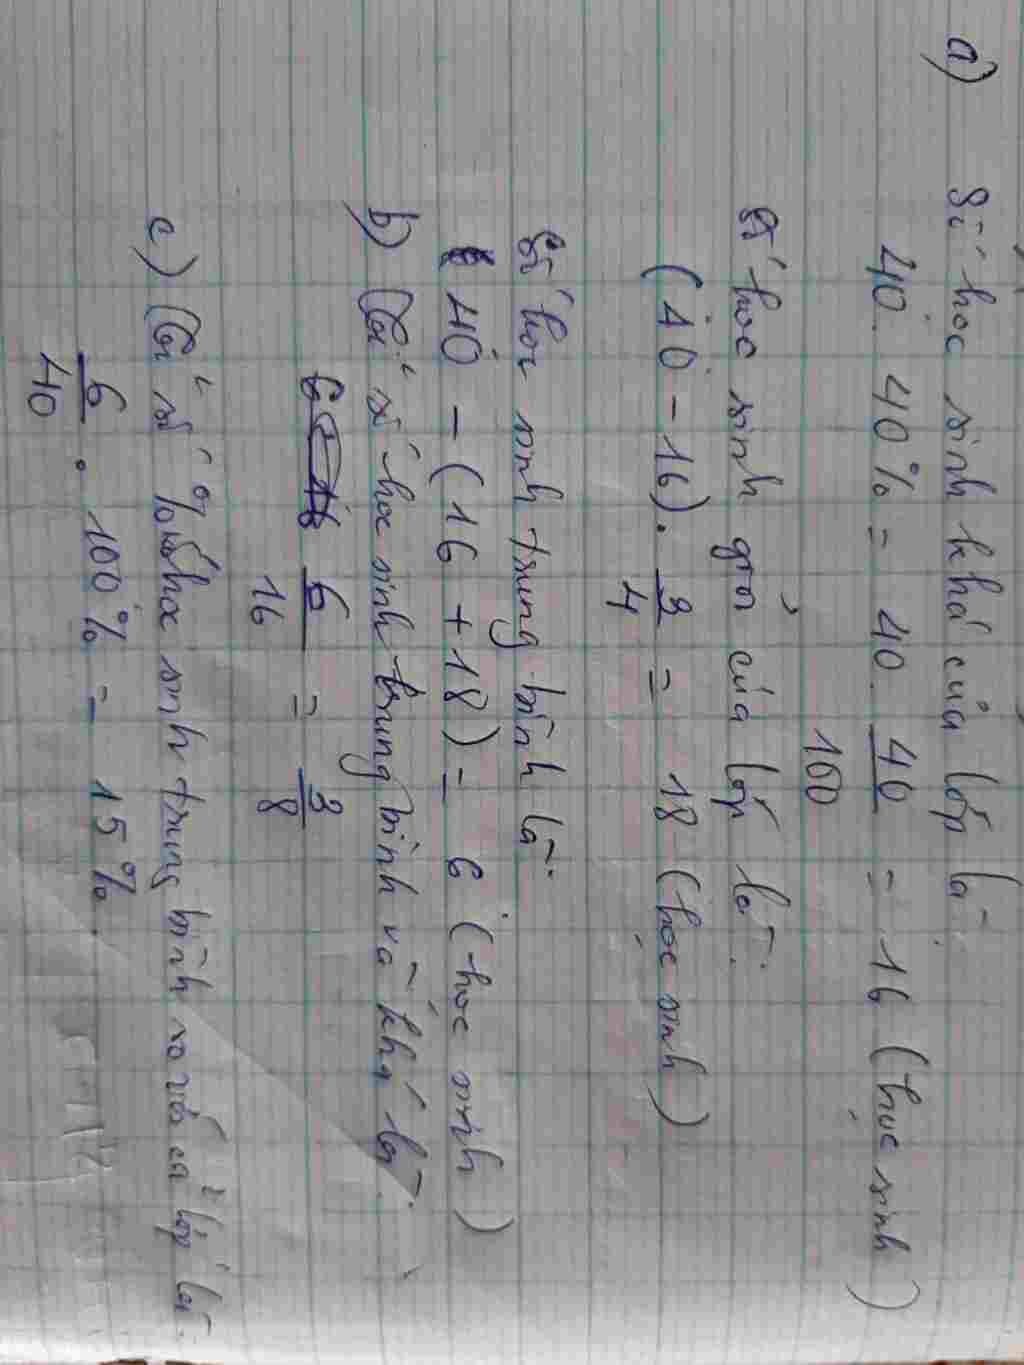 a) Số học sinh khá của lớp là
40. 40% = 40. 40/100 = 16 (học sinh)
Số học sinh giỏi của lớp là:
(40 - 16). 3/4 = 18 (học sinh)
Số học sinh trung bình là:
40 - (16 + 18) = 6 (học sinh)
b) Tỉ số học sinh trung bình và khá là:
6/16 = 3/8
c) Tỉ số % học sinh trung bình so với cả lớp là:
6/40 . 100% = 15%